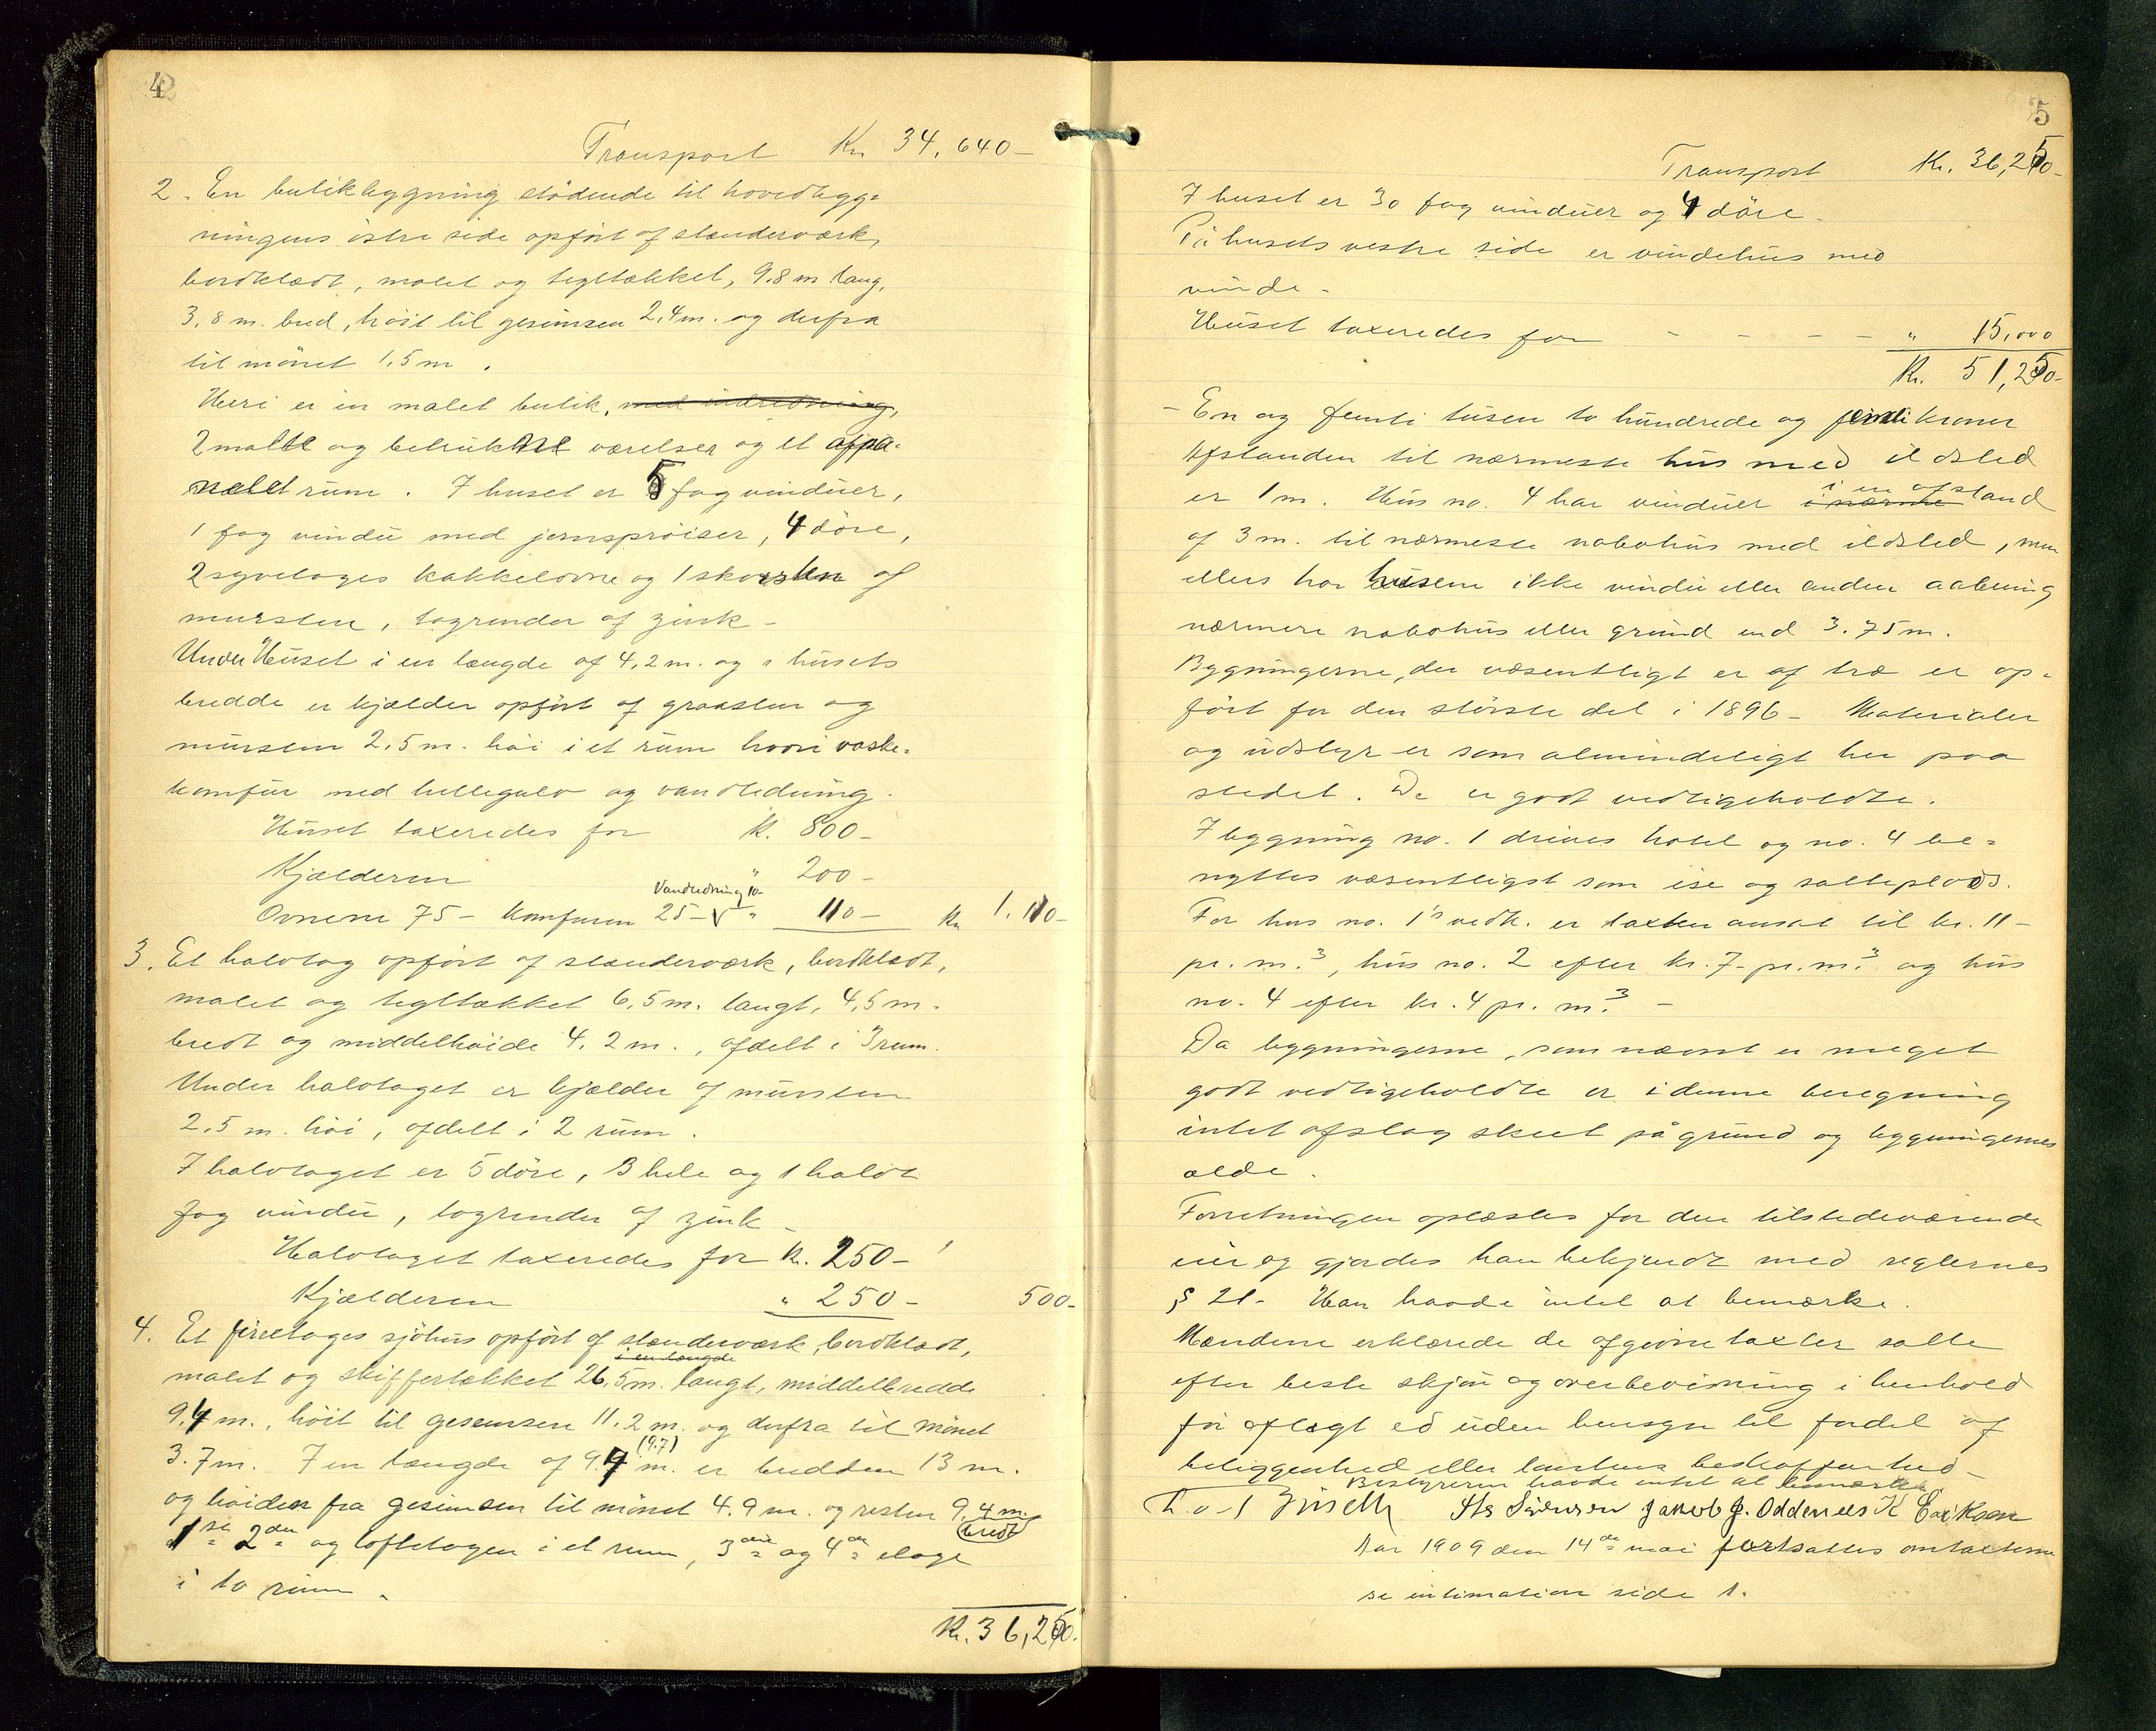 4
Transport Kr. 34,640-
2. En butikbygning stødende til hovedbyg-
ningens østre side opført af stænderværk,
bordklædt, malet og tegltækket, 9.8 m lang,
3,8 m. bred, høit til gesimsen 2,4 m. og derfra
til mønet 1,5 m.
Heri er en malet butik, med indredning,
2 malte og betrukne værelser og et oppa-
nelet rum. I huset er 5 fag vinduer,
1 fag vindu med jernsprøiser, 4 døre,
2 syvetages kakkelovne og 1 skorsten af
mursten, tagrender af zink-
Under Huset i en længde af 4,2 m. og i husets
bredde er kjælder opført af graasten og
mursten 2,5 m. høi i et rum hvori vaske-
komfur med hellegulv og vandledning.
Huset taxeredes for k. 800-
Kjælderen " 200-
Vandledning 10-
Ovnene 75- Komfuren 25- " 110- Kr 1.110-
3. Et halvtag opført af stænderværk, bordklædt,
malet og tegltækket 6,5 m. langt, 4,5 m.
bredt og middelhøide 4.2 m., afdelt i 3 rum.
Under halvtaget er kjælder af mursten
2.5 m. høi, afdelt i 2 rum.
I halvtaget er 5 døre, 3 hele og 1 halvt
fag vindu, tagrender af zink-
Halvtaget taxeredes for k. 250-
Kjælderen " 250- 500-
4. Et firetages sjøhus opført af stænderværk, bordklædt,
i en længde
malet og skiffertækket 26,5 m. langt, middelbredde
9.4 m., høit til gesimsen 11.2 m. og derfra til mønet
(9.7)
3.7 m. I en længde af 9.7 m. er bredden 13 m.
og høiden fra gesimsen til mønet 4.9 m. og resten 9,4 m.
bredt
1ste 2den og loftetagen i et rum, 3die og 4de etage
i to rum.
Kr. 36,250.
5
Transport Kr. 36,250-
I huset er 30 fag vinduer og 4 døre-
På husets vestre side er vindehus med
vinde-
Huset taxeredes for - - - - " 15,000
Kr. 51,250-
- En og femti tusen to hundrede og femti kroner
Afstanden til nærmeste hus med ildsted
er 1 m. Hus no. 4 har vinduer i nærme i en afstand
af 3 m. til nærmeste nabohus med ildsted, men
ellers har husene ikke vindu eller anden aabning
nærmere nabohus eller grund end 3.75 m.
Bygningerne, der væsentligt er af træ er op-
ført for den største del i 1896- Materialer
og udstyr er som almindeligt her paa
stedet. De er godt vedligeholdte.
I bygning no. 1 drives hotel og no. 4 be-
nyttes væsentligst som ise og salteplads.
For hus no. 1's vedk. er taxten ansat til kr. 11-
pr. m.3, hus no. 2 efter kr. 7- pr. m.3 og hus
no. 4 efter kr. 4 pr. m.3 -
Da bygningerne, som nævnt er meget
godt vedligeholdte er i denne beregning
intet afslag skeet på grund og bygningernes
alde.
Forretningen oplæstes for den tilstedeværende
eier og gjordes han bekjendt med reglernes
§ 21- Han havde intet at bemærke.
Mændene erklærede de afgivne taxter satte
efter beste skjøn og overbevisning i henhold
før aflagt ed uden hensyn til fordel af
beliggenhed eller tomtens beskaffenhed-
Bestyreren havde intet at bemærke
Jakob J. Oddenes K Eriksen
Aar 1909 den 14de mai fortsattes omtaxterne
se intimation side 1.